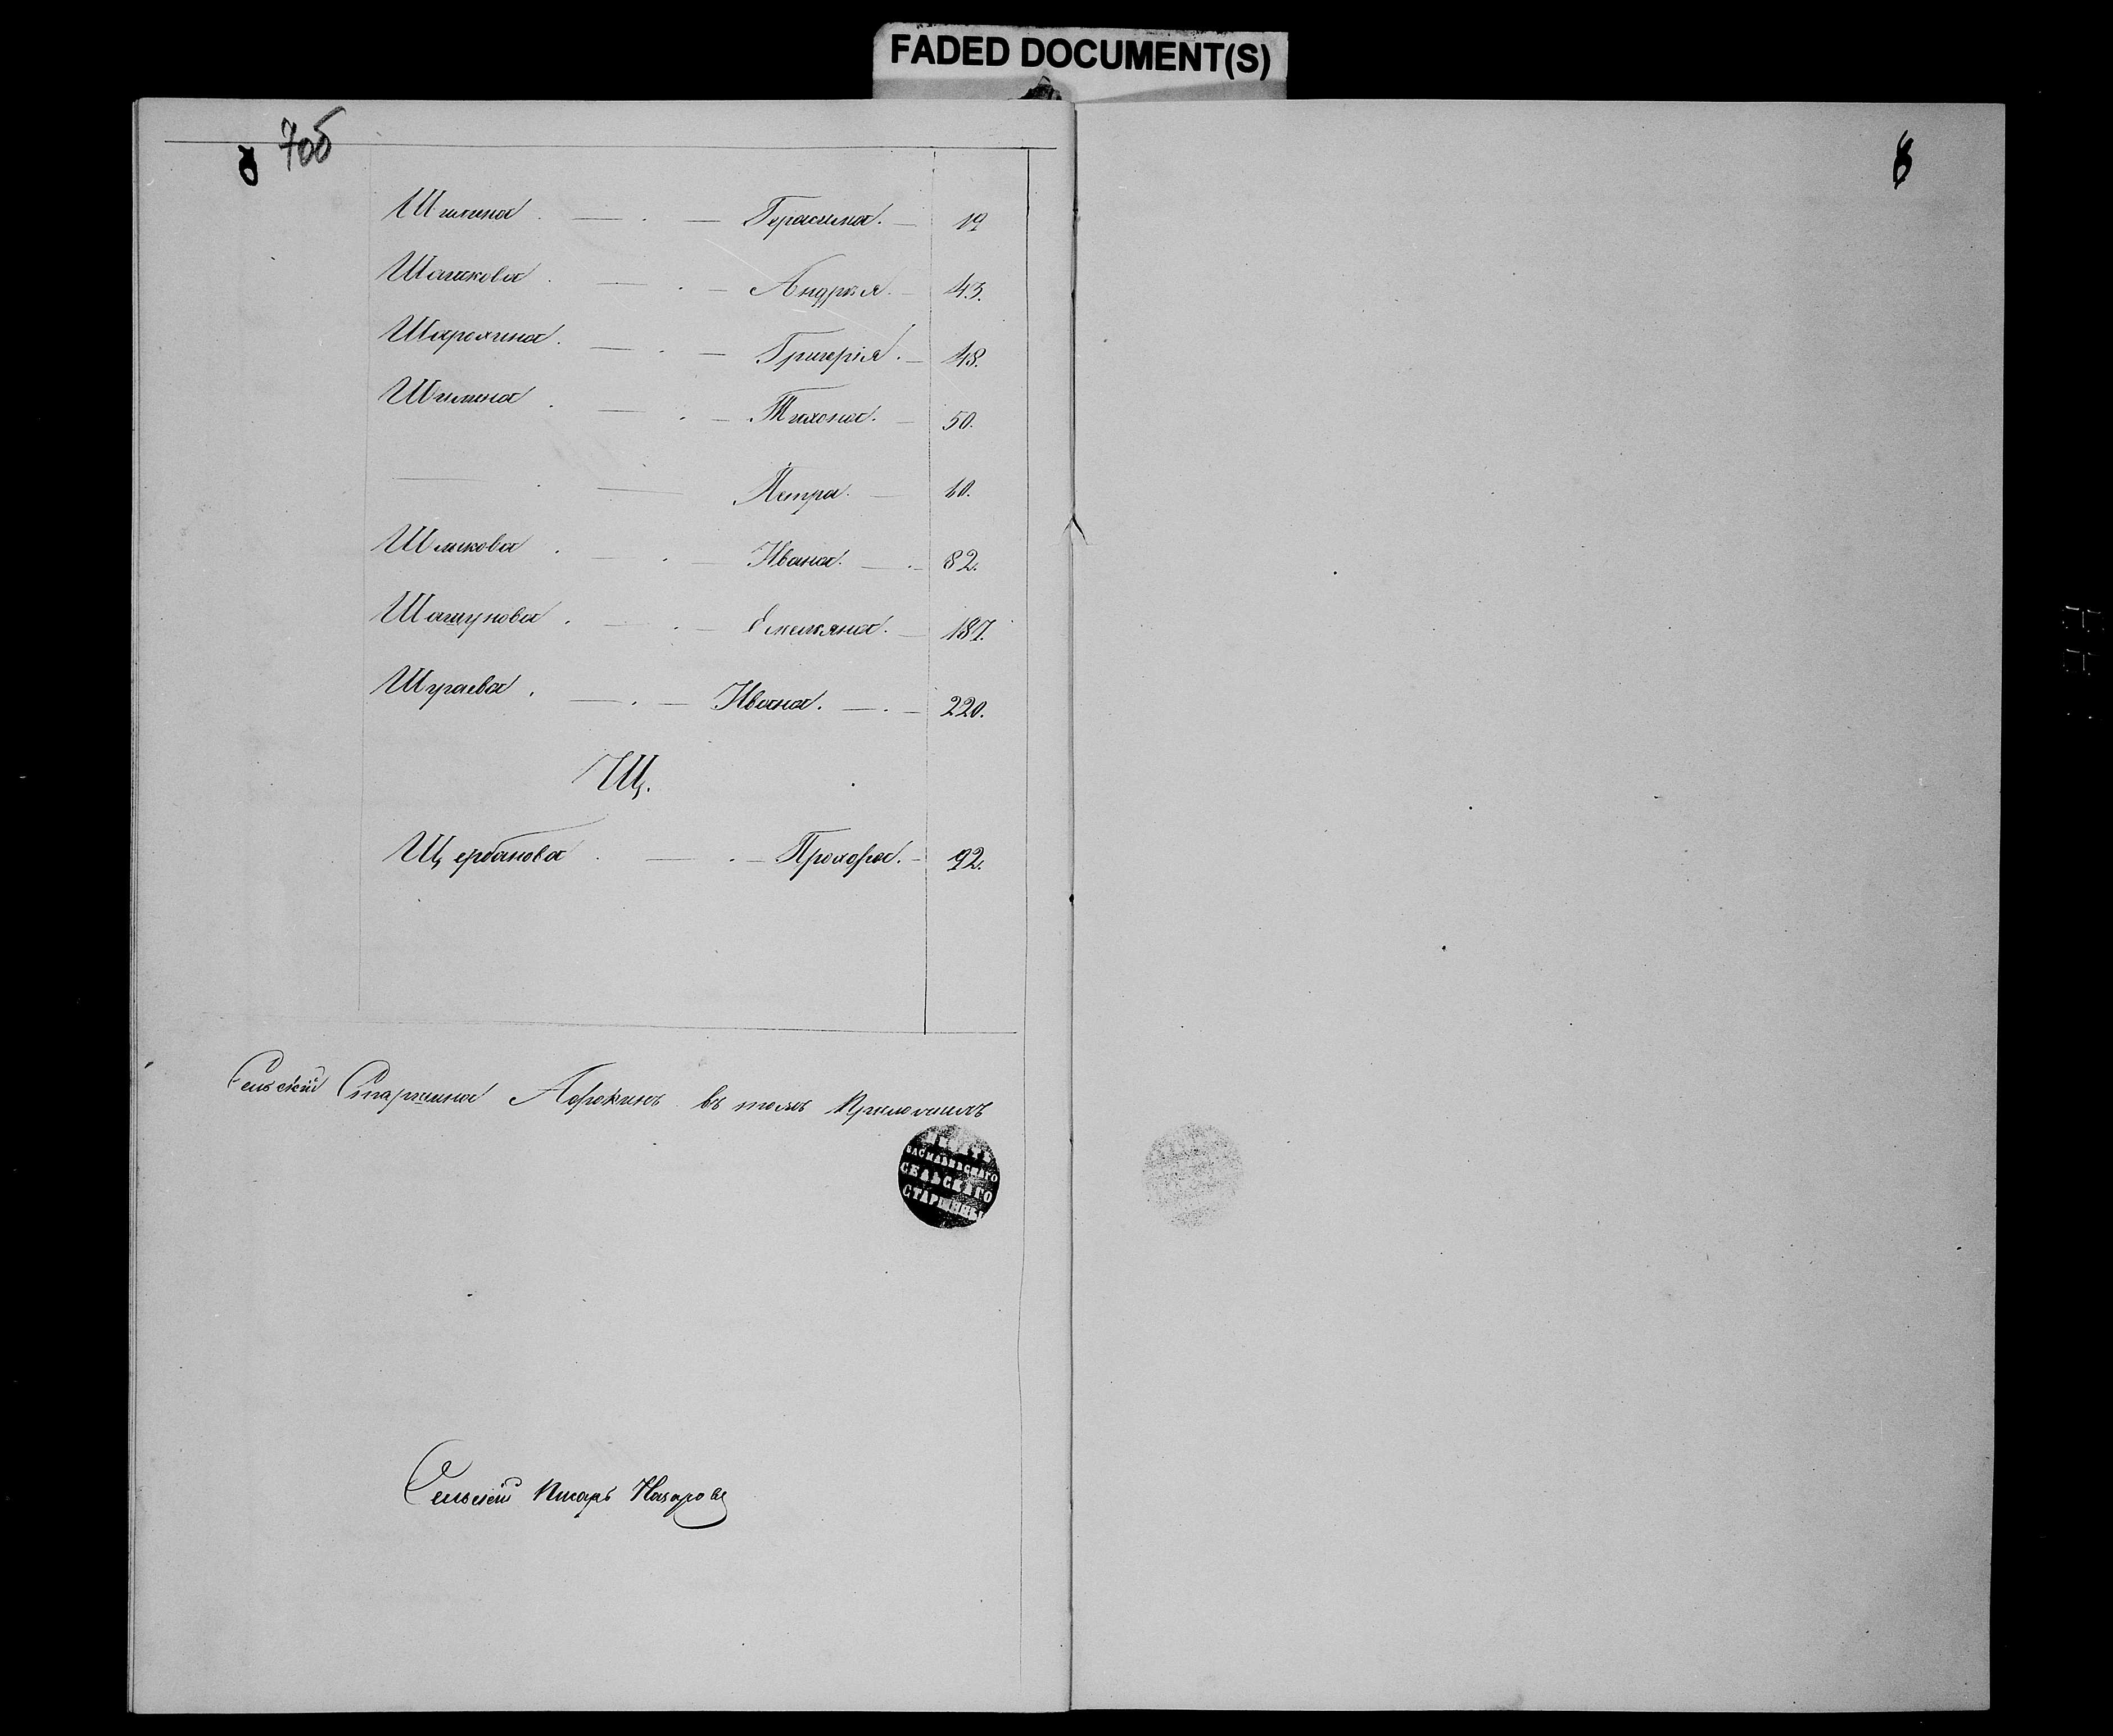 FADED DOCUMENT(S)
7об
Шилина. — . — Герасима. — 19
Шашкова. — . — Андрея. — 43.
Шарохина. — . — Григорія. — 48.
Шилина. — . — Тихона. — 50.
— . — Петра. — 60.
Шлыкова. — . — Ивана. — . — 82.
Шашунова. — . — Емельяна. — 187.
Шураева. — . — Ивана. — . — 220.
Щ.
Щербакова. — . — Прохора. — 92.
8
Сельскій Старшина въ томъ приложилъ
СЕЛЬСКАГО
СТАРШИНЫ
Сельскій Писарь Назаровъ